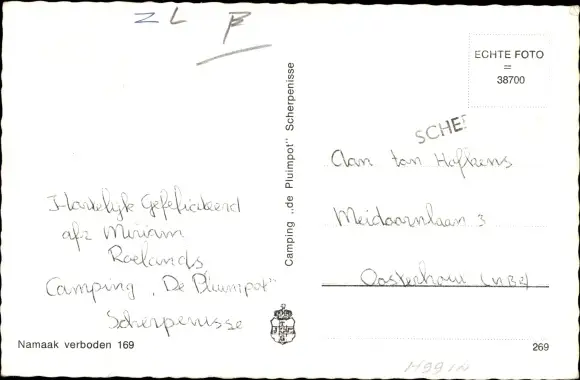 ZL
Hartelijk Gefeliciteerd
afz Miriam
Roelands
Camping "De Pluimpot"
Scherpenisse
Namaak verboden 169
Camping „de Pluimpot" Scherpenisse
ECHTE FOTO
=
38700
SCHE
Aan ton Hofkens
Meidoornlaan 3
Oosterhout (NBr)
269